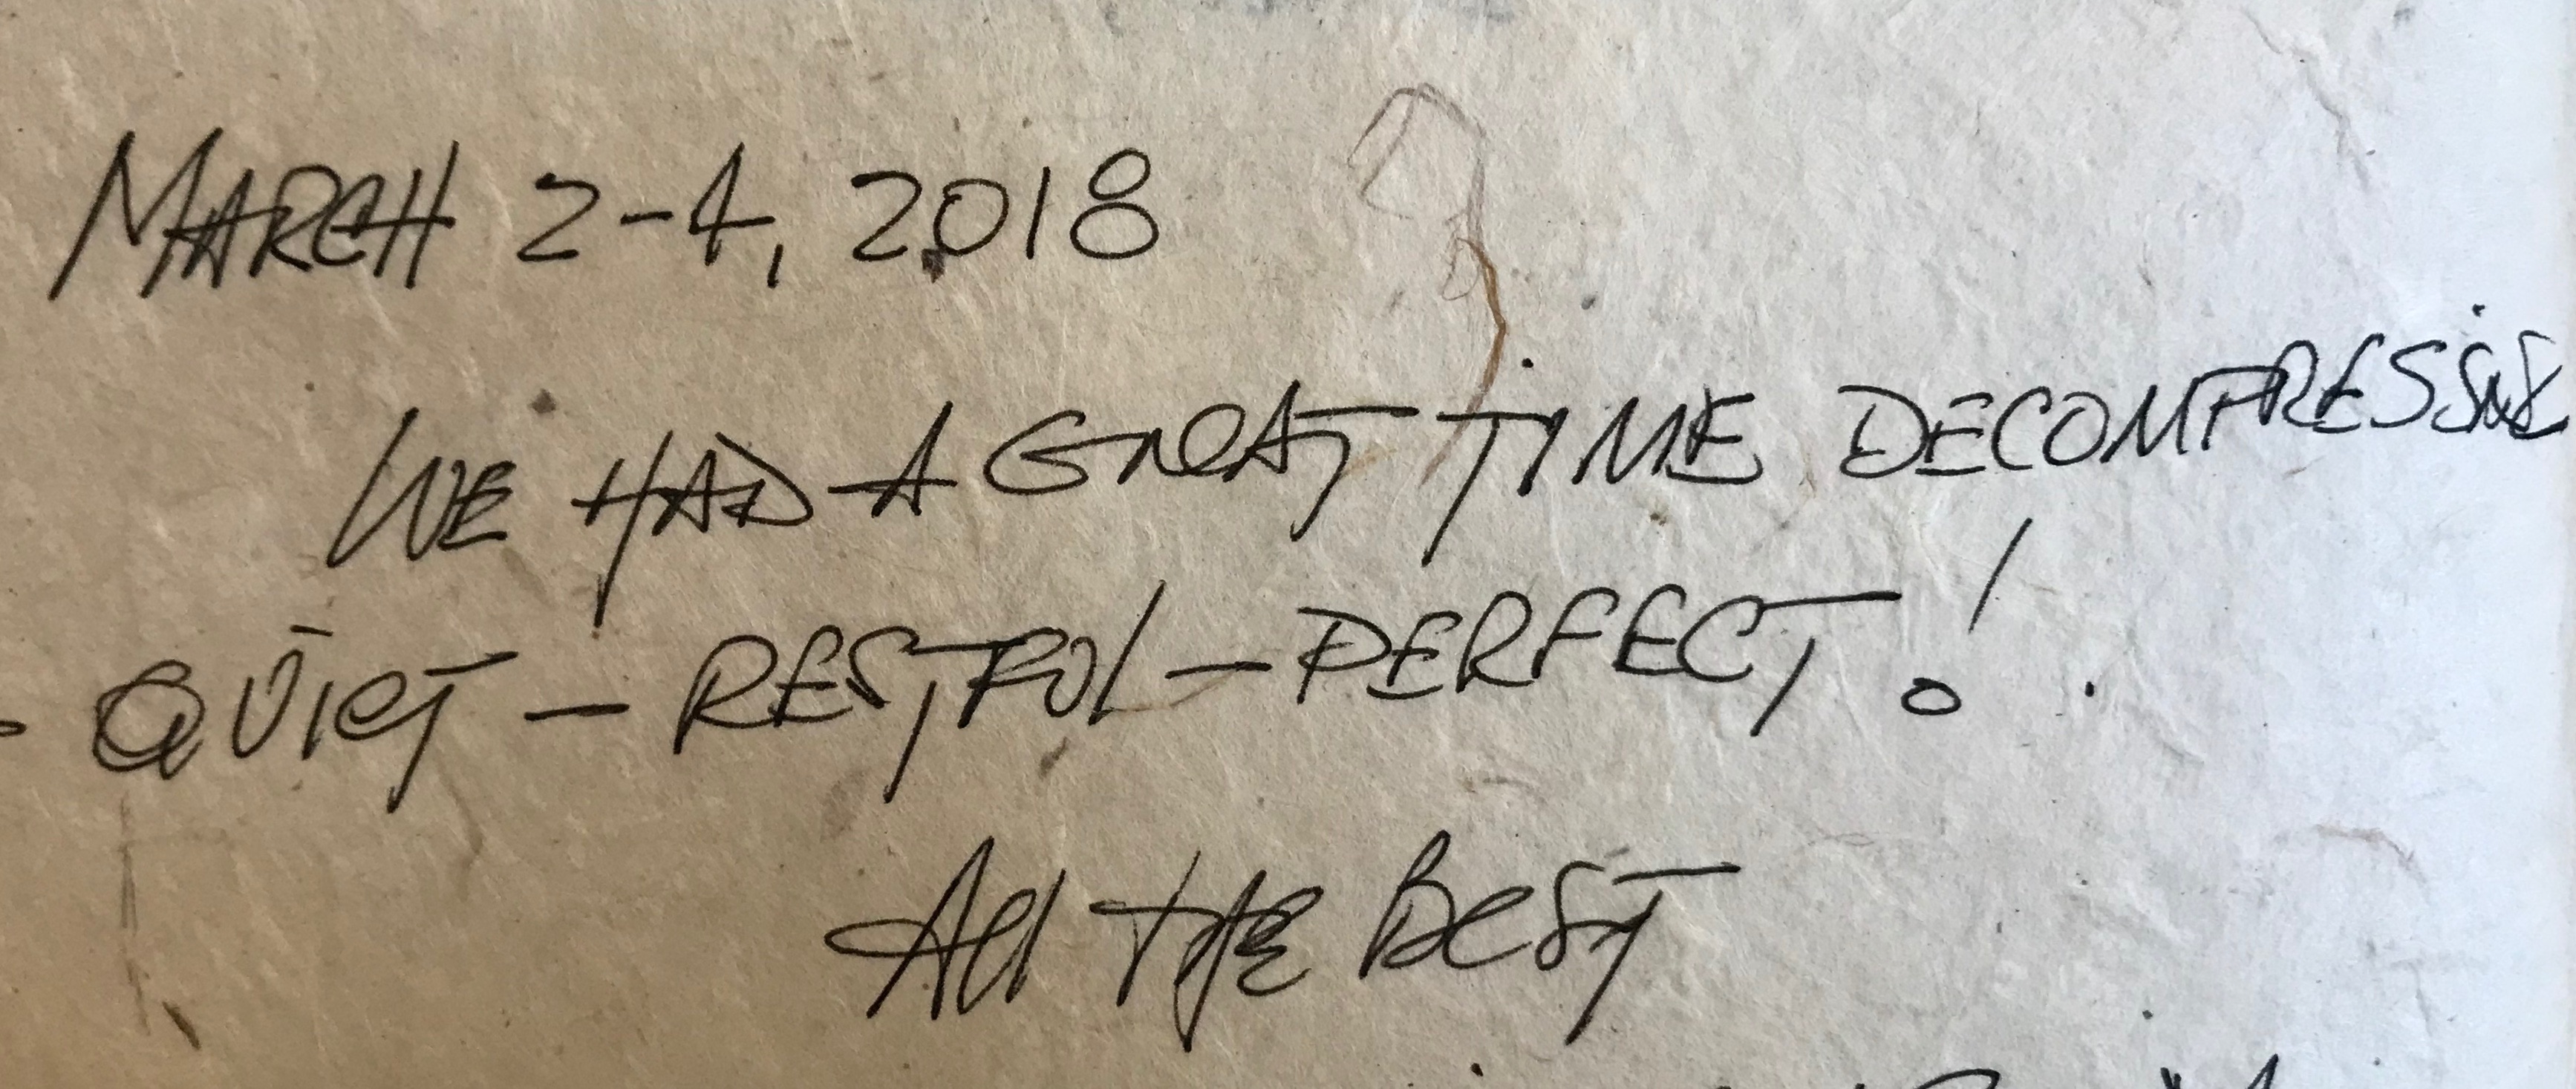 MARCH 2-4, 2018
WE HAD A GREAT TIME DECOMPRESSING
QUIET - RESTFUL - PERFECT!
All THE BEST